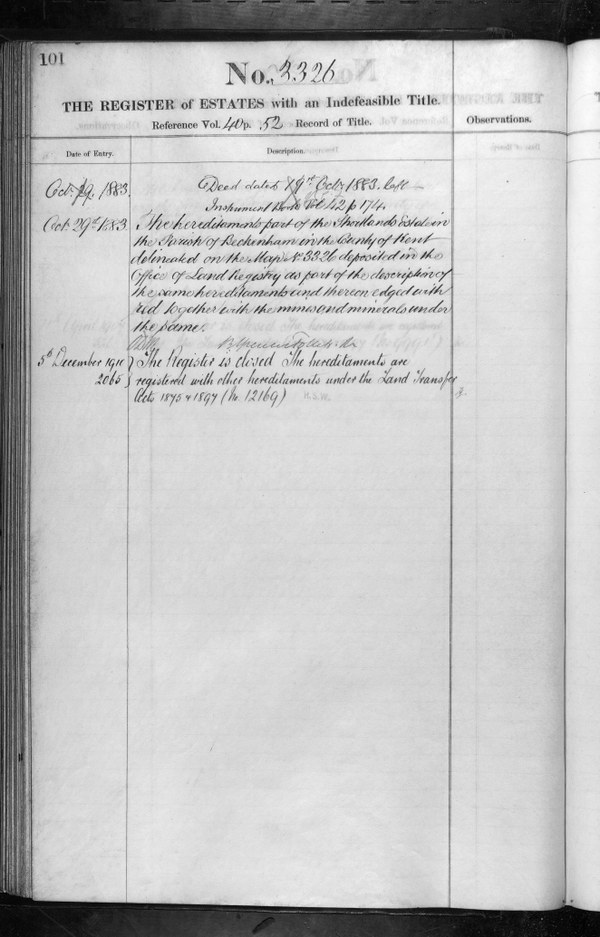 101
No. 3326
THE REGISTER of ESTATES with an Indefeasible Title.
Reference Vol. 40 p. 52 Record of Title.
Observations.
Date of Entry.
Description.
Oct. 19. 1883.
Deed dated 19th Octr. 1883. left
Instrument Book Vol 42 p 174.
Oct. 29th 1883.
The hereditaments part of the Shortlands Estate in
the Parish of Beckenham in the County of Kent
delineated on the Map No. 3326 deposited in the
Office of Land Registry as part of the description of
the same hereditaments and thereon edged with
red Together with the mines and minerals under
the same.
5th December 1910
The Register is closed The hereditaments are
2065
registered with other hereditaments under the Land Transfer
Acts 1875 & 1897 (No. 12169)